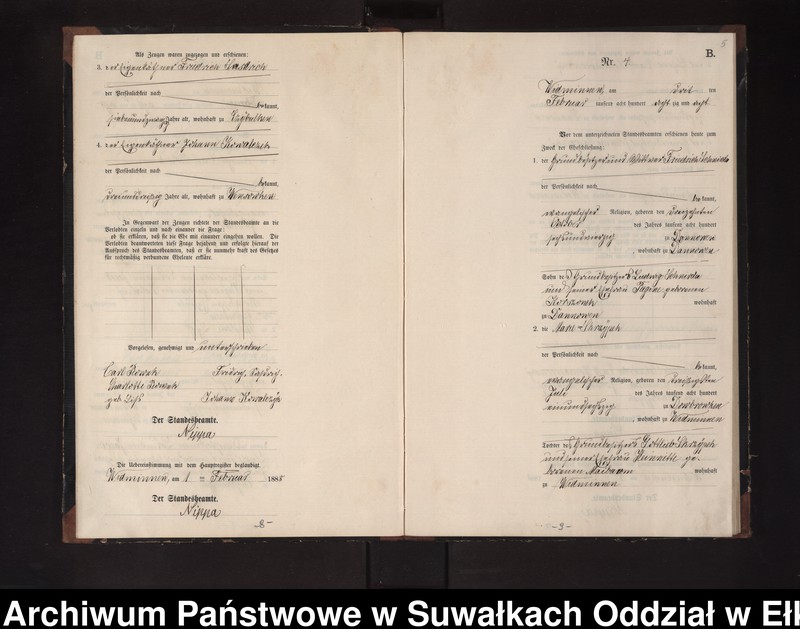 Als Zeugen waren zugezogen und erschienen:
3. der Eigenkäthner Friedrich
der Persönlichkeit nach
bekannt,
Jahre alt, wohnhaft zu
4. der Eigenkäthner Johann Kowalczik
der Persönlichkeit nach
bekannt,
dreiunddreißig Jahre alt, wohnhaft zu
In Gegenwart der Zeugen richtete der Standesbeamte an die
Verlobten einzeln und nach einander die Frage:
ob sie erklären, daß sie die Ehe mit einander eingehen wollen. Die
Verlobten beantworteten diese Frage bejahend und erfolgte hierauf der
Ausspruch des Standesbeamten, daß er sie nunmehr kraft des Gesetzes
für rechtmäßig verbundene Eheleute erkläre.
Vorgelesen, genehmigt und unterschrieben
Carl
Charlotte
geb
Johann Kowalczyk
Der Standesbeamte.
Nippa
Die Uebereinstimmung mit dem Hauptregister beglaubigt.
Widminnen, am 1 = Februar 1888
Der Standesbeamte.
Nippa
-8-
5
B.
Nr. 4
Widminnen, am drit ten
Februar tausend acht hundert acht zig und acht.
Vor dem unterzeichneten Standesbeamten erschienen heute zum
Zweck der Eheschließung:
1. der Grundbesitzer und Wittwer Friedrich
der Persönlichkeit nach
bekannt,
evangelischer Religion, geboren den dreizehnten
October des Jahres tausend acht hundert
sechsundvierzig zu Dannowen
, wohnhaft zu Dannowen
Sohn des Grundbesitzers Ludwig
und seiner Ehefrau Regine geborenen
wohnhaft
zu Dannowen
2. die Marie Skrzypek
der Persönlichkeit nach
bekannt,
evangelischer Religion, geboren den dreißigsten
Juli des Jahres tausend acht hundert
einundsechszig zu Dombrowken
, wohnhaft zu Widminnen
Tochter des Grundbesitzers Gottlieb Skrzypek
und seiner Ehefrau Henriette ge-
borenen wohnhaft
zu Widminnen
-9-
Archiwum Państwowe w Suwałkach Oddział w Ełk